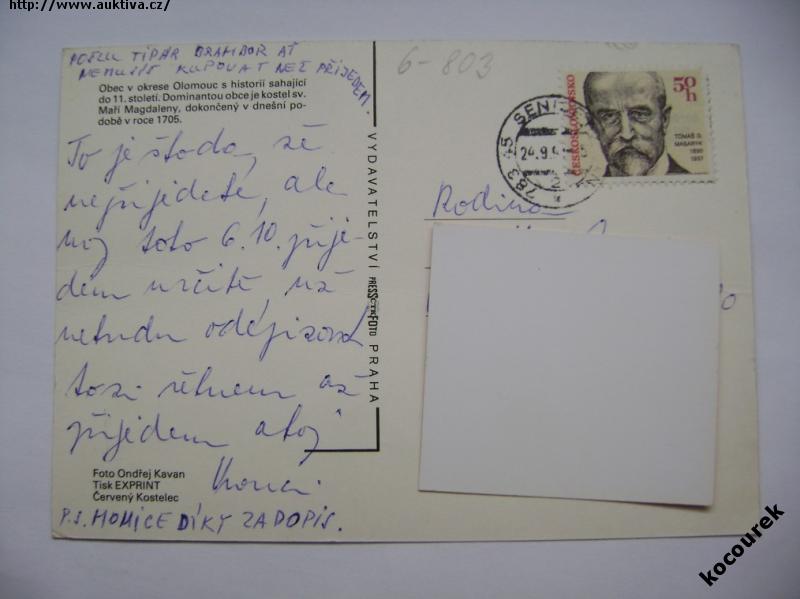 http://www.auktiva.cz/
BRAMBOR AŤ
KUPOVAT NEŽ PŘIJEDEM.
Obec v okrese Olomouc s historií sahající
do 11. století. Dominantou obce je kostel sv.
Maří Magdaleny, dokončený v dnešní po-
době v roce 1705.
To je škoda, že
nepřijedete, ale
my toto 6.10. přije-
dem určitě, už
nebudu
až
přijedem ahoj
Foto Ondřej Kavan
Tisk EXPRINT
Červený Kostelec
P.S. DÍKY ZA DOPIS.
VYDAVATELSTVÍ PRESSFOTO PRAHA
6-803
783 45 SENI
24.9.9
2
ČESKOSLOVENSKO
50 h
TOMÁŠ G.
MASARYK
1850
1937
Rodina
kocourek